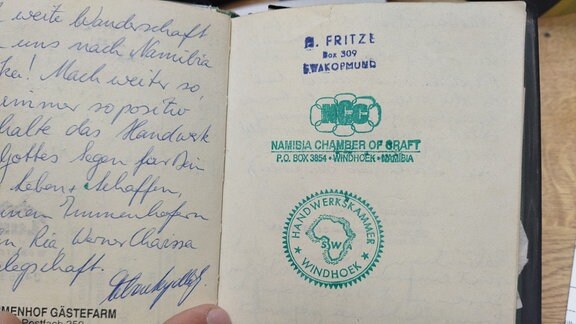 weite Wanderschaft
uns nach Namibia
Mach weiter so,
immer so positiv
halte das Handwerk
Gottes Segen für Dein
Leben + Schaffen,
Immenhofern
Ria, Werner
legschaft.
MENHOF GÄSTEFARM
Postfach 250
A. FRITZE
Box 309
SWAKOPMUND
NCC
NAMIBIA CHAMBER OF CRAFT
P.O. BOX 3854 • WINDHOEK • NAMIBIA
HANDWERKSKAMMER
SW
WINDHOEK